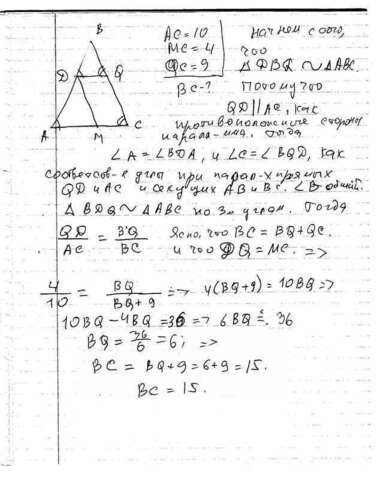 B
D
Q
A
M
C
AC = 10
MC = 4
QC = 9
BC - ?
Начнем с того,
что
△DBQ ~ △ABC.
Потому что
QD || AC, как
противоположные стороны
парал-мма. Тогда
∠A = ∠BDA, и ∠C = ∠BQD, как
соответств-е углы при парал-х прямых
QD и AC и секущих AB и BC. ∠B общий.
△BDQ ~ △ABC по 3м углам. Тогда
QD/AC = BQ/BC Ясно, что BC = BQ + QC.
и что DQ = MC. =>
4/10 = BQ/(BQ + 9) => 4(BQ+9) = 10BQ =>
10BQ - 4BQ = 36 => 6BQ = 36
BQ = 36/6 = 6; =>
BC = BQ + 9 = 6 + 9 = 15.
BC = 15.